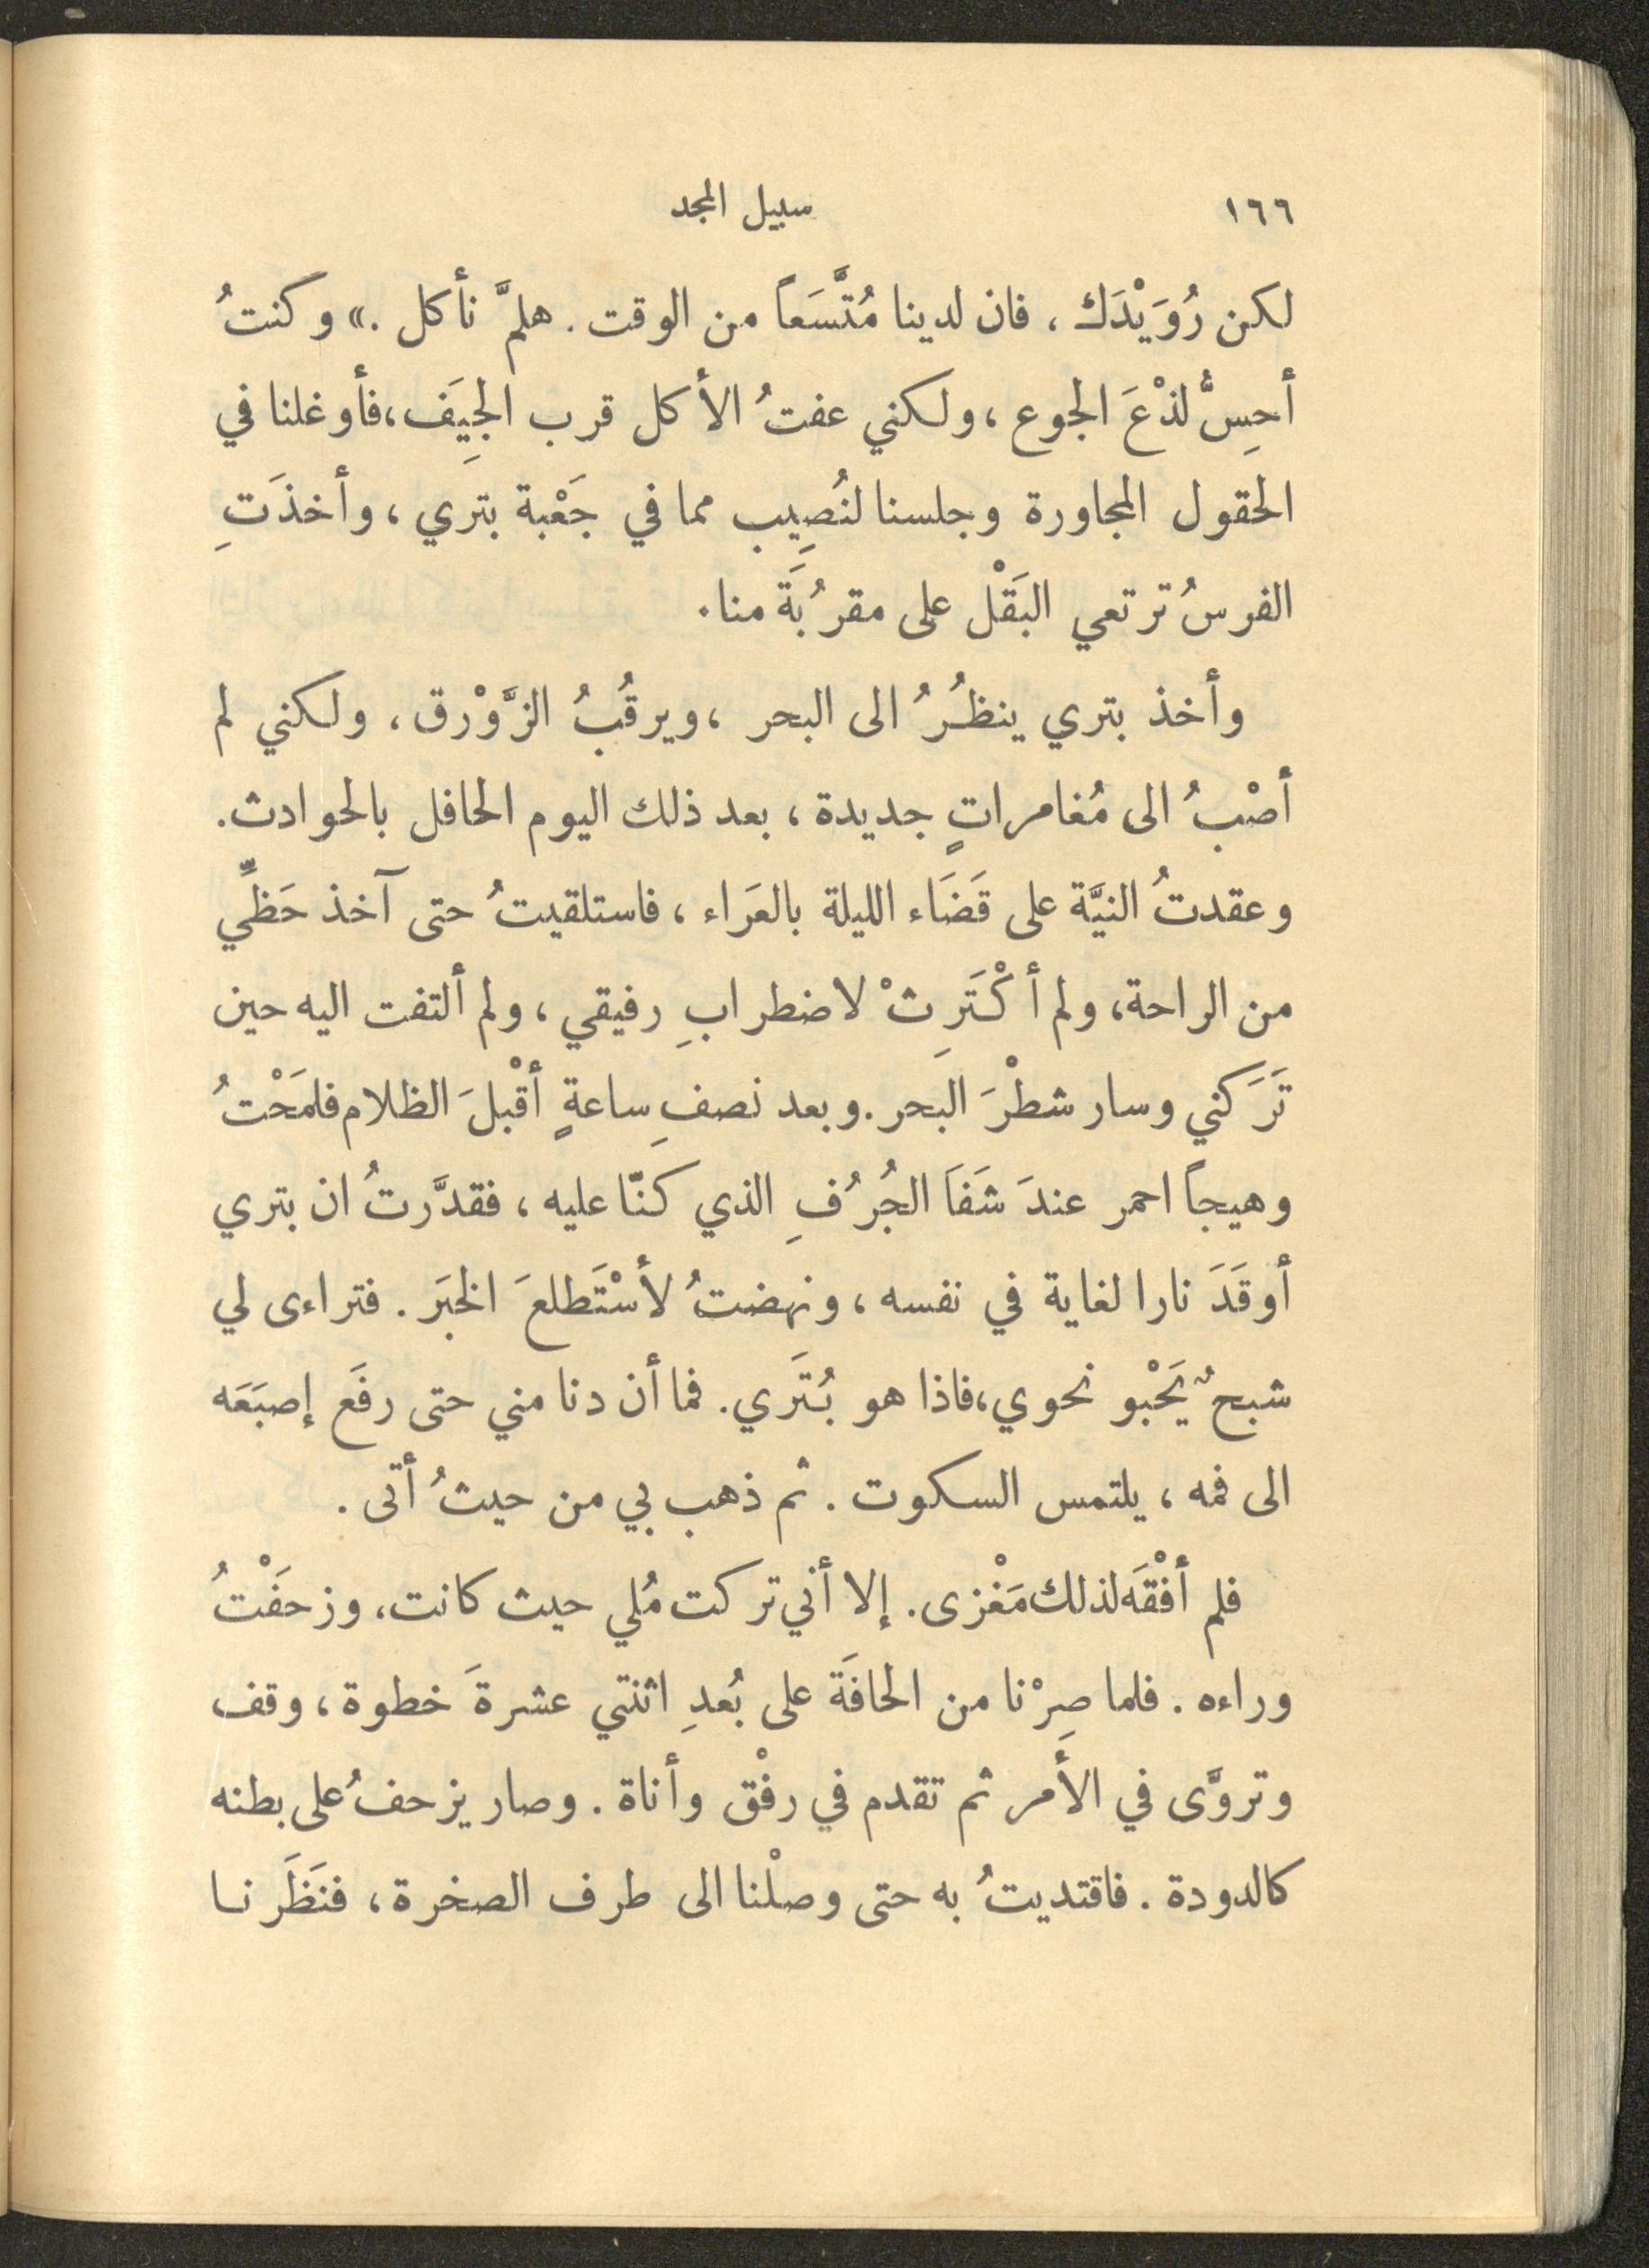 ١٦٦ سبيل المجد
لكن رُوَيْدَك ، فان لدينا مُتَّسَعاً من الوقت . هلمَّ نأكل . » وكنتُ
أحِسُّ لذْعَ الجوع ، ولكني عفتُ الأكل قرب الجِيَف ، فأوغلنا في
الحقول المجاورة وجلسنا لنُصِيب مما في جَعْبة بتَري ، وأخذَتِ
الفرسُ ترتعي البَقْل على مقرُبَة منا .
وأخذ بتري ينظُرُ الى البحر ، ويرقُبُ الزَّوْرق ، ولكني لم
أصْبُ الى مُغامراتٍ جديدة ، بعد ذلك اليوم الحافل بالحوادث .
وعقدتُ النيَّة على قَضَاء الليلة بالعَراء ، فاستلقيتُ حتى آخذ حَظِّي
من الراحة ، ولم أكْتَرِثْ لاضطرابِ رفيقي ، ولم ألتفت اليه حين
تَرَكني وسار شطْرَ البحر . وبعد نصفِ ساعةٍ أقْبلَ الظلام فلمَحْتُ
وهيجاً احمر عندَ شَفَا الجُرُفِ الذي كنّا عليه ، فقدَّرتُ ان بتري
أوقَدَ نارا لغاية في نفسه ، ونهضتُ لأسْتَطلعَ الخبَر . فتراءى لي
شبحٌ يَحْبو نحوي ، فاذا هو بُتَري . فما أن دنا مني حتى رفَع إصبَعَه
الى فمه ، يلتمس السكوت . ثم ذهب بي من حيثُ أتى .
فلم أفْقَه لذلك مَغْزى . إلا أني تركت مُلي حيث كانت ، وزحَفْتُ
وراءه . فلما صِرْنا من الحافَة على بُعدِ اثنتي عشرةَ خطوة ، وقف
وتروَّى في الأَمر ثم تقدم في رفْق وأناة . وصار يزحفُ على بطنه
كالدودة . فاقتديتُ به حتى وصلْنا الى طرف الصخرة ، فنَظَرنا